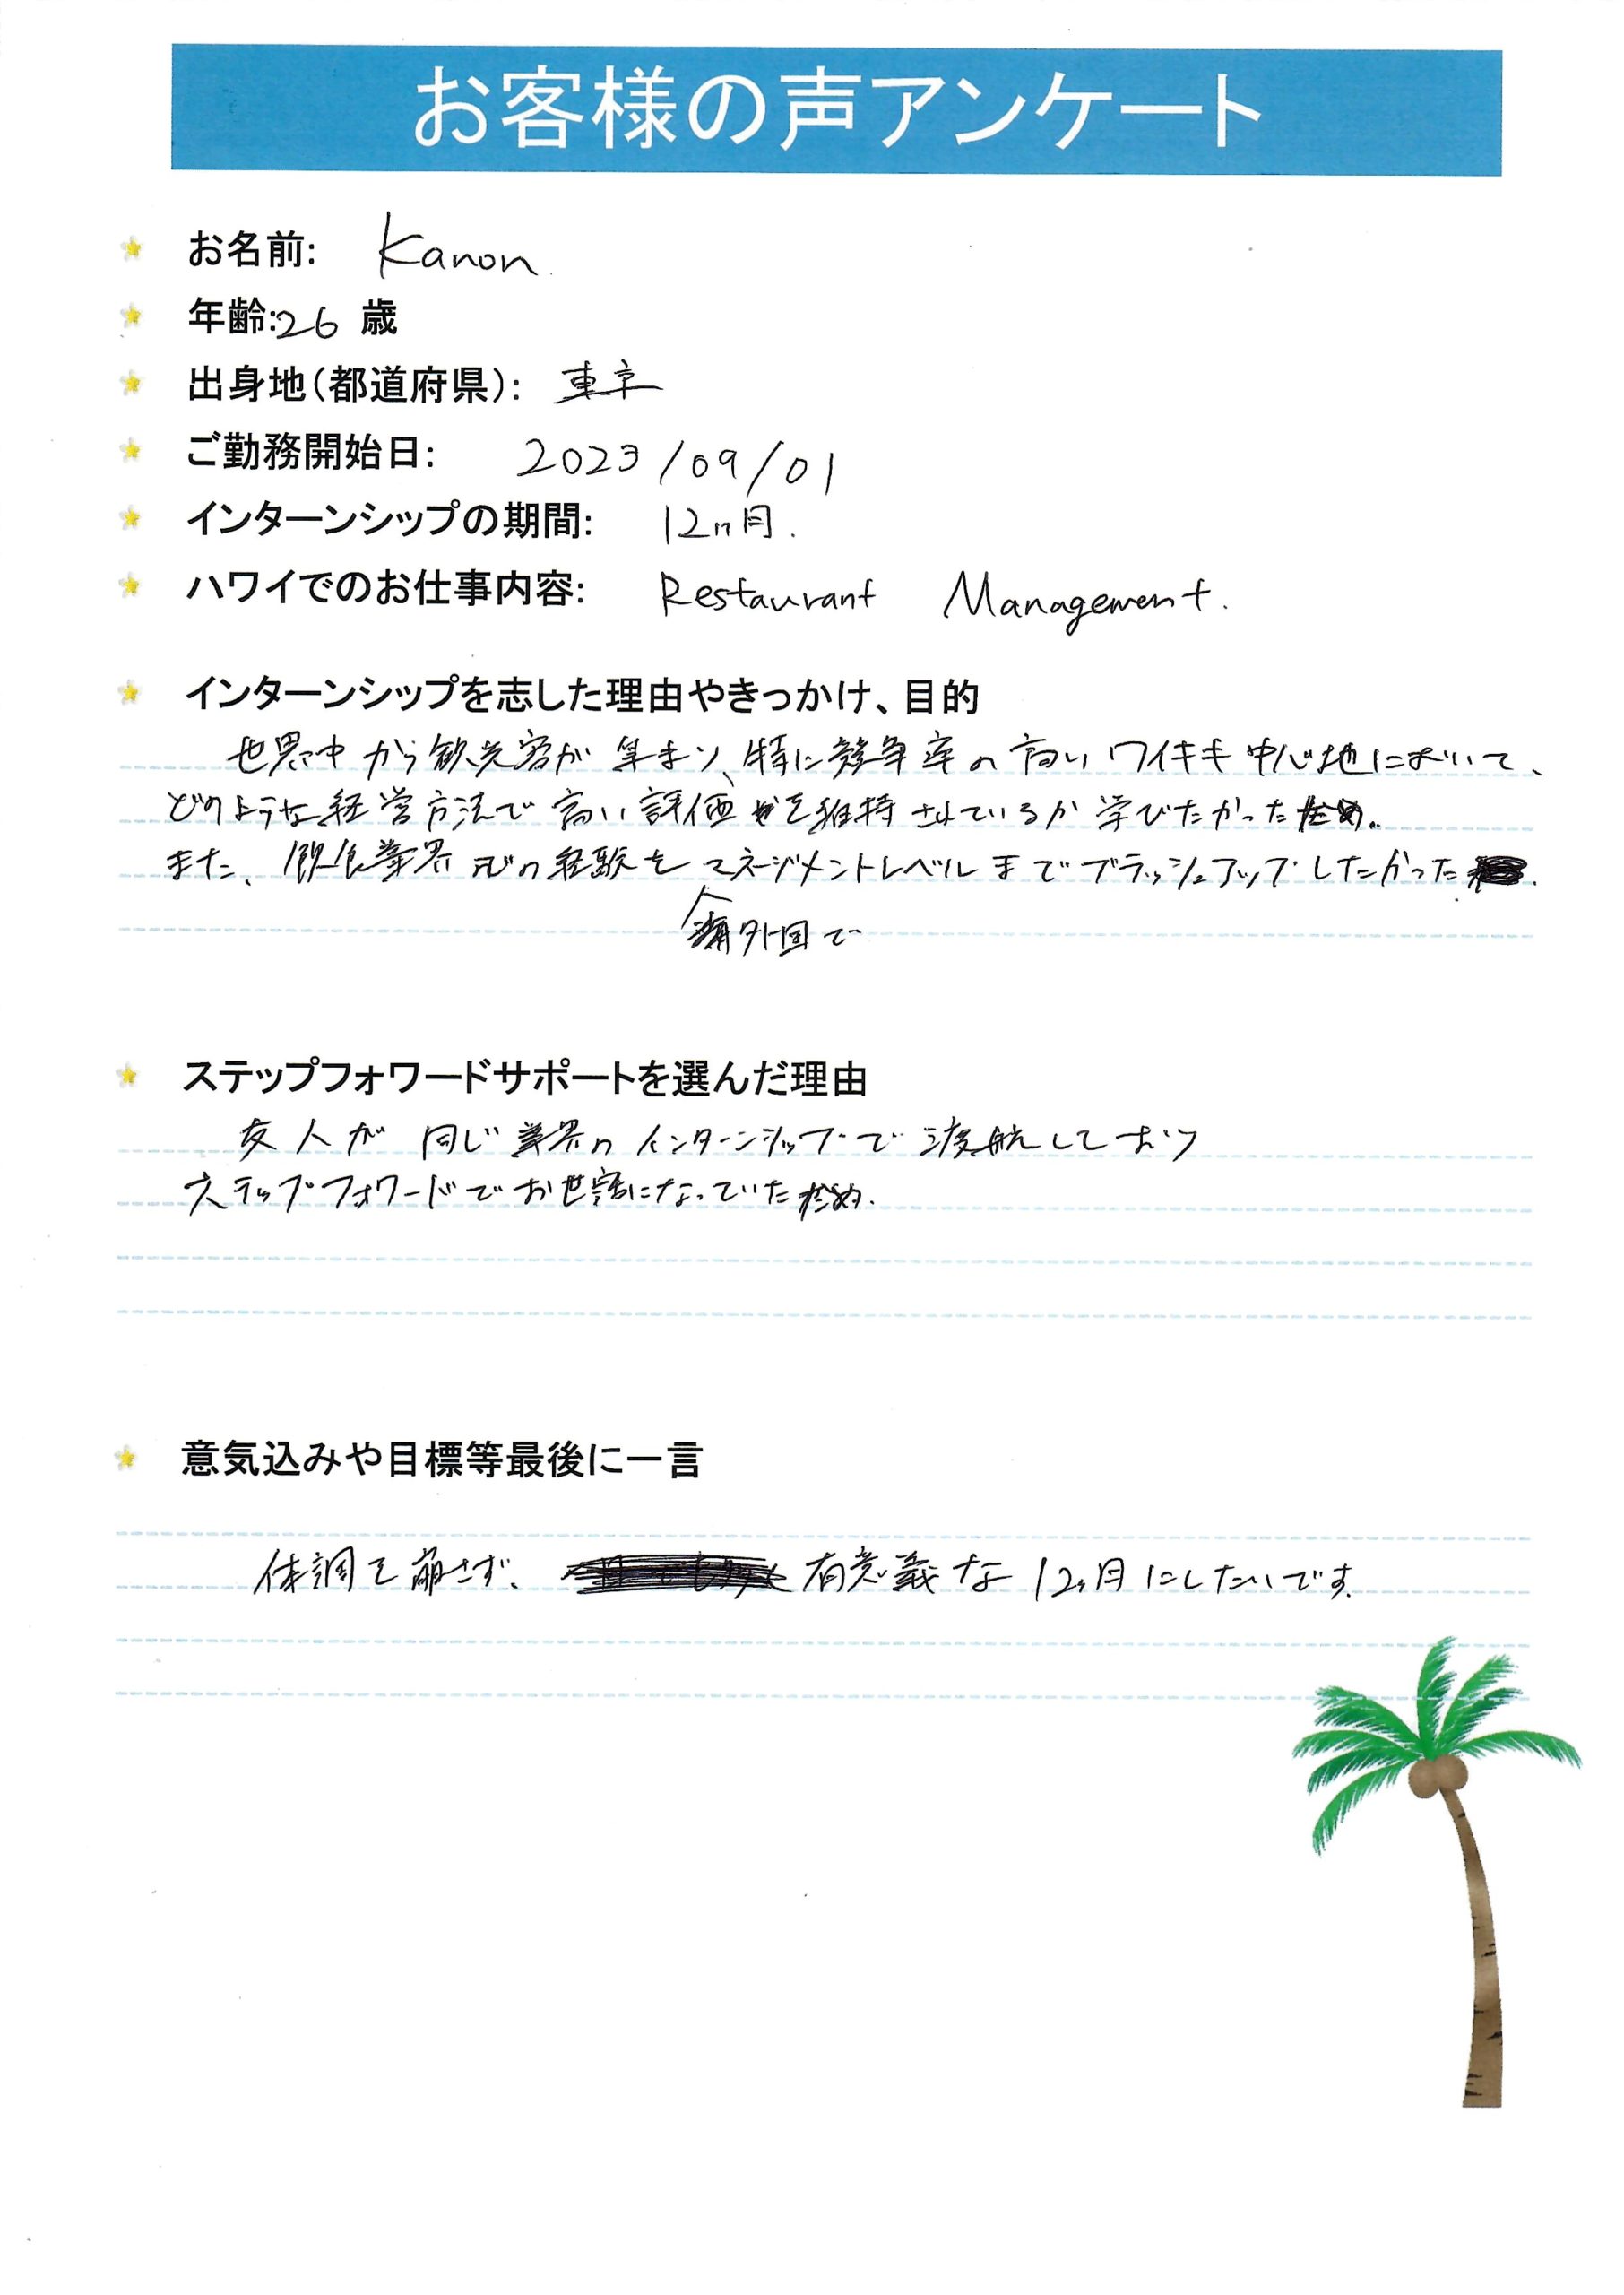 お客様の声アンケート
お名前: Kanon
年齢:26 歳
出身地(都道府県): 東京
ご勤務開始日: 2023/09/01
インターンシップの期間: 12ヶ月.
ハワイでのお仕事内容: Restaurant Management.
インターンシップを志した理由やきっかけ、目的
世界中から観光客が集まり、特に競争率の高いワイキキ中心地において、
どのような経営方法で高い評価を維持されているか学びたかったため。
また、飲食業界での経験をマネージメントレベルまでブラッシュアップしたかった.
海外国で
ステップフォワードサポートを選んだ理由
友人が同じ業界のインターンシップで渡航しており
ステップフォワードでお世話になっていたため.
意気込みや目標等最後に一言
体調を崩さず、有意義な12ヶ月にしたいです.